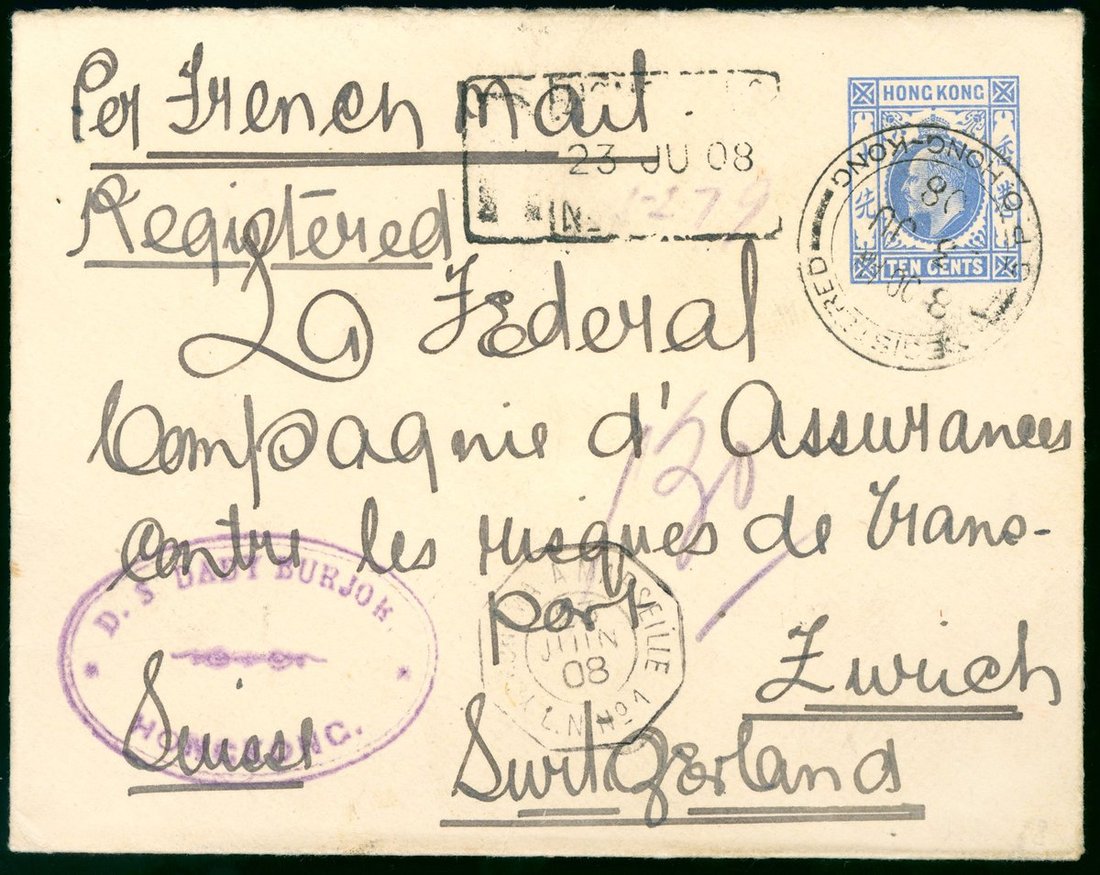 Per French Mail.
HONG KONG
23 JU 08
Registered
TEN CENTS
G.P.O. HONG-KONG
REGISTERED
La Federal
Compagnie d'Assurances
130
contre les risques de Trans-
port
D. S. DADY BURJOR.
HONGKONG.
MARSEILLE
JUIN
08
L.N Nº 1
Zurich
Suisse Switzerland